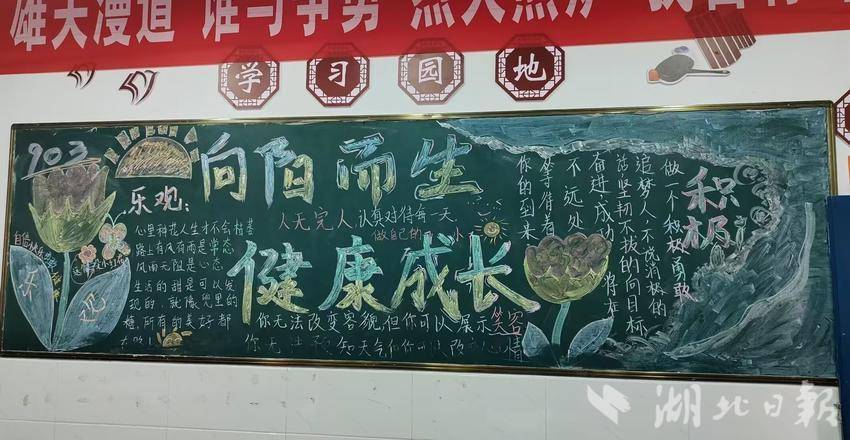 雄天漫道 谁与争势
学习园地
903
向阳而生
健康成长
乐观:
心里种花人生才不会枯萎
路上有风有雨是常态
风雨无阻是心态
生活的甜是可以发
现的,就像兜里的
糖,所有的美好都
人无完人认真对待每一天
做自己的 小
你无法改变容貌但你可以展示笑容
知天气但你 心情
积极:
做一个积极勇敢
追梦人,不说消极的
话坚韧不拔的向目标
奋进,成功 将在
不远处
等待着
你的到来
乐 观
湖北日报